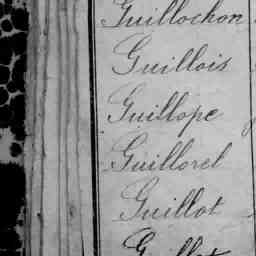 Guillochon
Guillois
Guillope
Guillorel
Guillot
Guillot